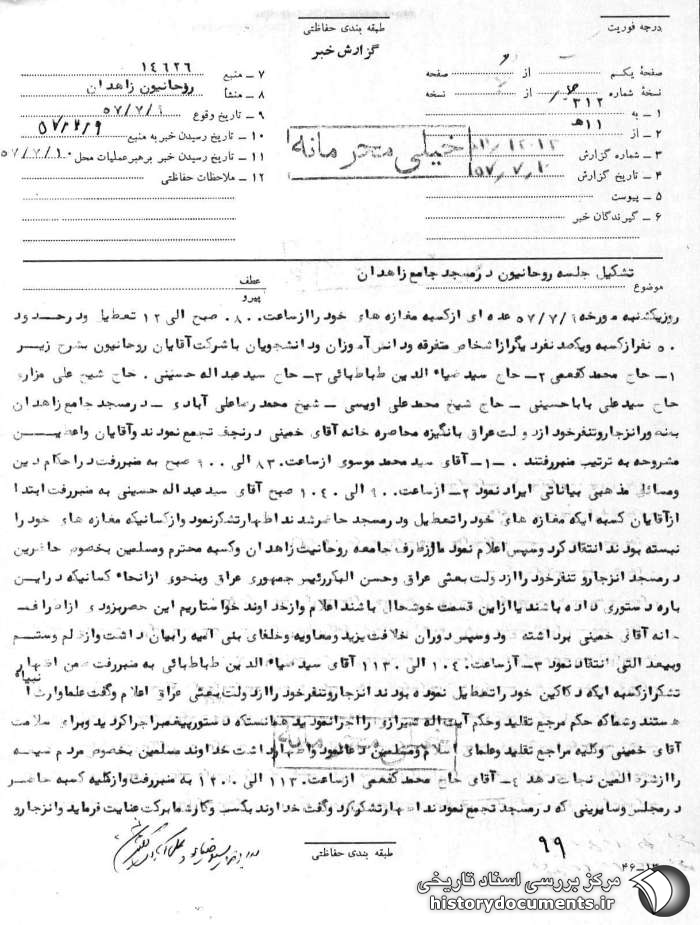 درجه فوریت
طبقه بندی حفاظتی
گزارش خبر
صفحهٔ یکم از صفحه
نسخهٔ شماره از نسخه
۱ ـ به ۳۱۲
۲ ـ از ۱۱ هـ
۳ ـ شماره گزارش
۴ ـ تاریخ گزارش ۵۷٫۷٫۱۰
۵ ـ پیوست
۶ ـ گیرندگان خبر
خیلی محرمانه
۷ ـ منبع ۱۴۶۲۶
۸ ـ منشأ روحانیون زاهدان
۹ ـ تاریخ وقوع ۵۷/۷/۹
۱۰ ـ تاریخ رسیدن خبر به منبع ۵۷٫۷٫۹
۱۱ ـ تاریخ رسیدن خبر برهبر عملیات محل ۵۷/۷/۱۰
۱۲ ـ ملاحظات حفاظتی
موضوع تشکیل جلسه روحانیون در مسجد جامع زاهدان
عطف
پیرو
روز یکشنبه مورخه ۵۷/۷/۹ عده ای از کسبه مغازه های خود را از ساعت ۰۸۰۰ صبح الی ۱۲ تعطیل و در حدود
۵۰ نفر از کسبه و یکصد نفر دیگر از اشخاص متفرقه و دانش آموزان و دانشجویان با شرکت آقایان روحانیون بشرح زیر
۱ـ حاج محمد کفعمی ۲ـ حاج سید ضیاء الدین طباطبائی ۳ـ حاج سید عبداله حسینی . حاج شیخ علی مزاری
حاج سید علی بابا حسینی ـ حاج شیخ محمد علی اویسی ـ شیخ محمد رضا علی آبادی ـ در مسجد جامع زاهدان
بمنظور انزجار و تنفر خود از دولت عراق بانگیزه محاصره خانه آقای خمینی در نجف تجمع نمودند و آقایان واعظین
مشروحه به ترتیب منبر رفتند . ـ ۱ـ آقای سید محمد موسوی از ساعت ۰۸۳۰ الی ۰۹۰۰ صبح به منبر رفت در احکام دین
و مسائل مذهبی بیاناتی ایراد نمود ۲ـ از ساعت ۰۹۰۰ الی ۱۰۴۰ صبح آقای سید عبداله حسینی به منبر رفت ابتدا
از آقایان کسبه ایکه مغازه های خود را تعطیل و در مسجد حاضر شدند اظهار تشکر نمود و از کسانیکه مغازه های خود را
نبسته بودند انتقاد کرد و سپس اعلام نمود ما از طرف جامعه روحانیت زاهدان و کسبه محترم و مسلمین بخصوص حاضرین
در مسجد انزجار و تنفر خود را از دولت بعثی عراق و حسن البکر رئیس جمهوری عراق و بنحوی از انحاء کسانیکه در این
باره دستوری داده باشند یا از این قسمت خوشحال باشند اعلام و از خداوند خواستاریم این حصر بزودی از اطراف
خانه آقای خمینی برداشته شود و سپس دوران خلافت یزید و معاویه و خلفای بنی امیه را بیان داشت و از ظلم و ستم
و بیعدالتی انتقاد نمود ۳ـ از ساعت ۱۰۴۰ الی ۱۱۳۰ آقای سید ضیاء الدین طباطبائی به منبر رفت ضمن اظهار
تشکر از کسبه ایکه دکاکین خود را تعطیل نموده بودند انزجار و تنفر خود را از دولت بعثی عراق اعلام و گفت علما وارث انبیاء
هستند و شما که حکم مرجع تقلید و حکم آیت اله شیرازی را اجرا نمودید همانست که دستور پیغمبر اجرا کردید و برای سلامت
آقای خمینی و کلیه مراجع تقلید و علمای اسلام و مسلمین دعا نمود و اظهار داشت خداوند مسلمین بخصوص مردم
را از شر ظالمین نجات دهد ۴ـ آقای حاج محمد کفعمی از ساعت ۱۱۳۰ الی ۱۲۰۰ به منبر رفت و از کلیه کسبه حاضر
در مجلس و سایرینی که در مسجد تجمع نمودند اظهار تشکر کرد و گفت خداوند بکسب و کار شما برکت عنایت فرماید و انزجار و
طبقه بندی حفاظتی
۹۹
مرکز بررسی اسناد تاریخی
historydocuments.ir